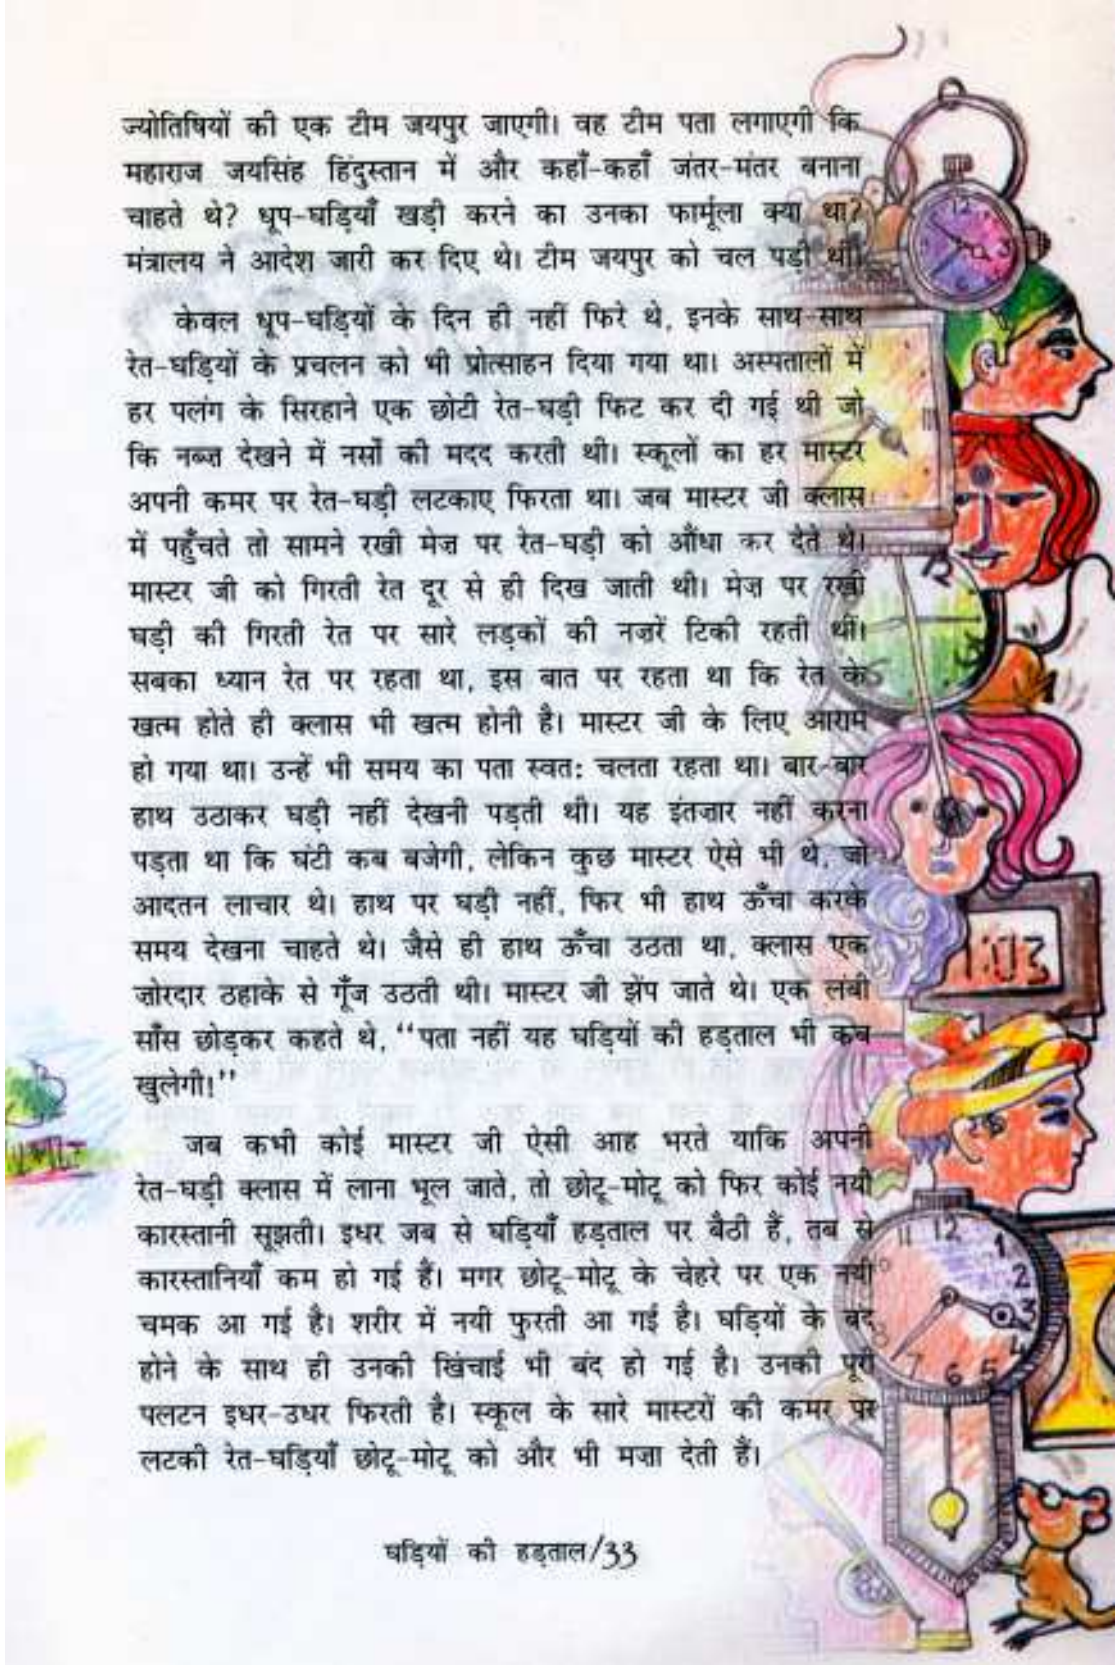 ज्योतिषियों की एक टीम जयपुर जाएगी। वह टीम पता लगाएगी कि
महाराज जयसिंह हिंदुस्तान में और कहाँ-कहाँ जंतर-मंतर बनाना
चाहते थे? धूप-घड़ियाँ खड़ी करने का उनका फार्मूला क्या था?
मंत्रालय ने आदेश जारी कर दिए थे। टीम जयपुर को चल पड़ी थी।
केवल धूप-घड़ियों के दिन ही नहीं फिरे थे, इनके साथ-साथ
रेत-घड़ियों के प्रचलन को भी प्रोत्साहन दिया गया था। अस्पतालों में
हर पलंग के सिरहाने एक छोटी रेत-घड़ी फिट कर दी गई थी जो
कि नब्ज़ देखने में नर्सों की मदद करती थी। स्कूलों का हर मास्टर
अपनी कमर पर रेत-घड़ी लटकाए फिरता था। जब मास्टर जी क्लास
में पहुँचते तो सामने रखी मेज़ पर रेत-घड़ी को औंधा कर देते थे।
मास्टर जी को गिरती रेत दूर से ही दिख जाती थी। मेज़ पर रखी
घड़ी की गिरती रेत पर सारे लड़कों की नज़रें टिकी रहती थीं।
सबका ध्यान रेत पर रहता था, इस बात पर रहता था कि रेत के
खत्म होते ही क्लास भी खत्म होनी है। मास्टर जी के लिए आराम
हो गया था। उन्हें भी समय का पता स्वत: चलता रहता था। बार-बार
हाथ उठाकर घड़ी नहीं देखनी पड़ती थी। यह इंतज़ार नहीं करना
पड़ता था कि घंटी कब बजेगी, लेकिन कुछ मास्टर ऐसे भी थे, जो
आदतन लाचार थे। हाथ पर घड़ी नहीं, फिर भी हाथ ऊँचा करके
समय देखना चाहते थे। जैसे ही हाथ ऊँचा उठता था, क्लास एक
ज़ोरदार ठहाके से गूँज उठती थी। मास्टर जी झेंप जाते थे। एक लंबी
साँस छोड़कर कहते थे, “पता नहीं यह घड़ियों की हड़ताल भी कब
खुलेगी!”
जब कभी कोई मास्टर जी ऐसी आह भरते याकि अपनी
रेत-घड़ी क्लास में लाना भूल जाते, तो छोटू-मोटू को फिर कोई नयी
कारस्तानी सूझती। इधर जब से घड़ियाँ हड़ताल पर बैठी हैं, तब से
कारस्तानियाँ कम हो गई हैं। मगर छोटू-मोटू के चेहरे पर एक नयी
चमक आ गई है। शरीर में नयी फुरती आ गई है। घड़ियों के बंद
होने के साथ ही उनकी खिंचाई भी बंद हो गई है। उनकी पूरी
पलटन इधर-उधर फिरती है। स्कूल के सारे मास्टरों की कमर पर
लटकी रेत-घड़ियाँ छोटू-मोटू को और भी मज़ा देती हैं।
घड़ियों की हड़ताल/33
12
3
6
12
1:03
11 12 1
2
3
4
5
6
7
8